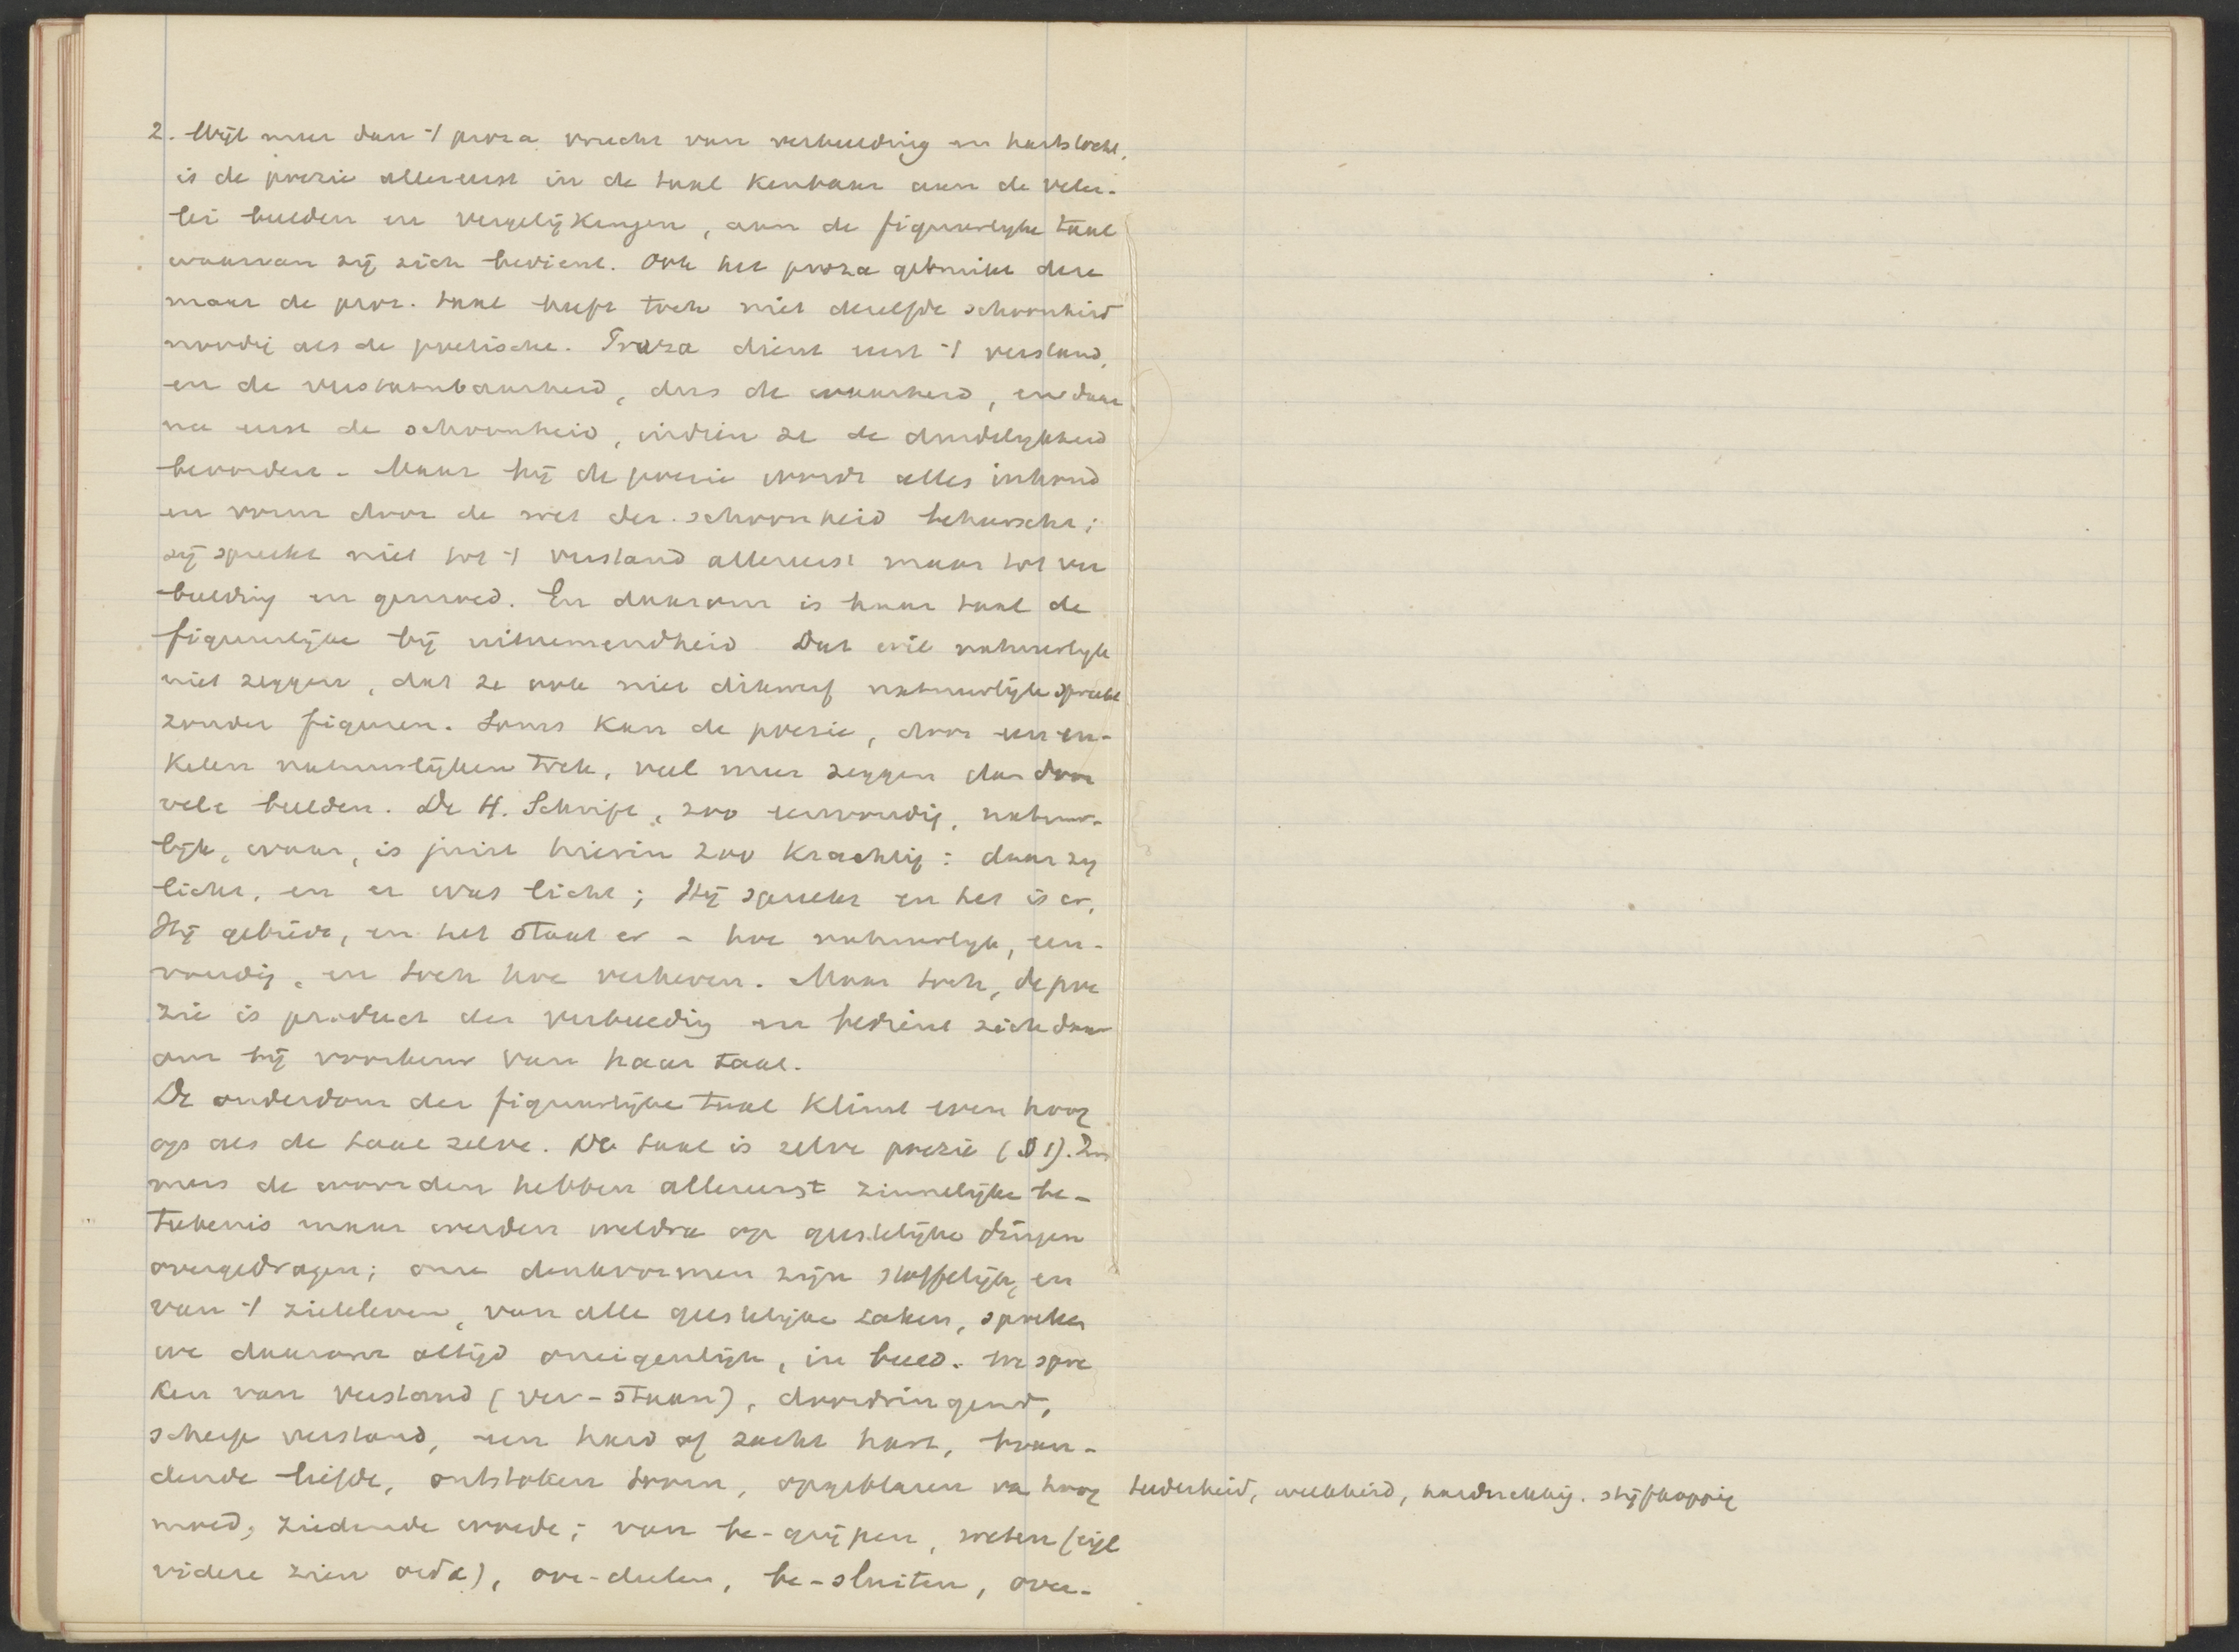 2. Wijl meer dan 't proza vrucht van verbeelding en hartstocht,
is de poezie allereerst in de taal kenbaar aan de veler-
lei beelden en vergelijkingen, aan de figuurlyke taal
waarvan zij zich bedient. Ook het proza gebruikt deze
maar de proz. taal heeft toch niet dezelfde schoonheid
noodig als de poetische. Proza dient eerst 't verstand,
en de verstaanbaarheid, dus de waarheid, en daar
na eerst de schoonheid, indien ze de duidelykheid
bevordert - Maar bij de poezie wordt alles inhoud
en vorm door de wet der schoonheid beheerscht;
zij spreekt niet tot 't verstand allereerst maar tot ver
beelding en gemoed. En daarom is haar taal de
figuurlijke bij uitnemendheid. Dat wil natuurlyk
niet zeggen, dat ze ook niet dikwerf natuurlijk spreekt
zonder figuren. Soms kan de poezie, door een en-
kelen natuurlijken trek, veel meer zeggen dan door
vele beelden. De H. Schrift, zoo eenvoudig, natuur-
lijk, waar, is juist hierin zoo krachtig: daar zy
licht, en er was licht; Hij spreekt en het is er,
Hij gebiedt, en het staat er - hoe natuurlyk, een-
voudig, en toch hoe verheven. Maar toch, de poe
zie is product der verbeelding en bedient zich daar
om bij voorkeur van haar taal.
De ouderdom der figuurlijke taal klimt even hoog
op als de taal zelve. De taal is zelve poezie (§ 1). Im
mers de woorden hebben allereerst zinnelijke be-
teekenis maar werden weldra op geestelijke dingen
overgedragen; onze denkvormen zijn stoffelijk, en
van 't zieleleven, van alle geestelijke zaken, spreken
we daarom altijd oneigenlijk, in beeld. We spre
ken van verstand (ver-staan), doordringend,
scherp verstand, een hard of zacht hart, bran-
dende liefde, ontstoken toorn, opgeblazen van hoog
moed, ziedende woede; van be-grijpen, weten (eigl
videre zien οιδα), oor-deelen, be-sluiten, over-
teederheid, weekheid, hardnekkig. stijfkoppig